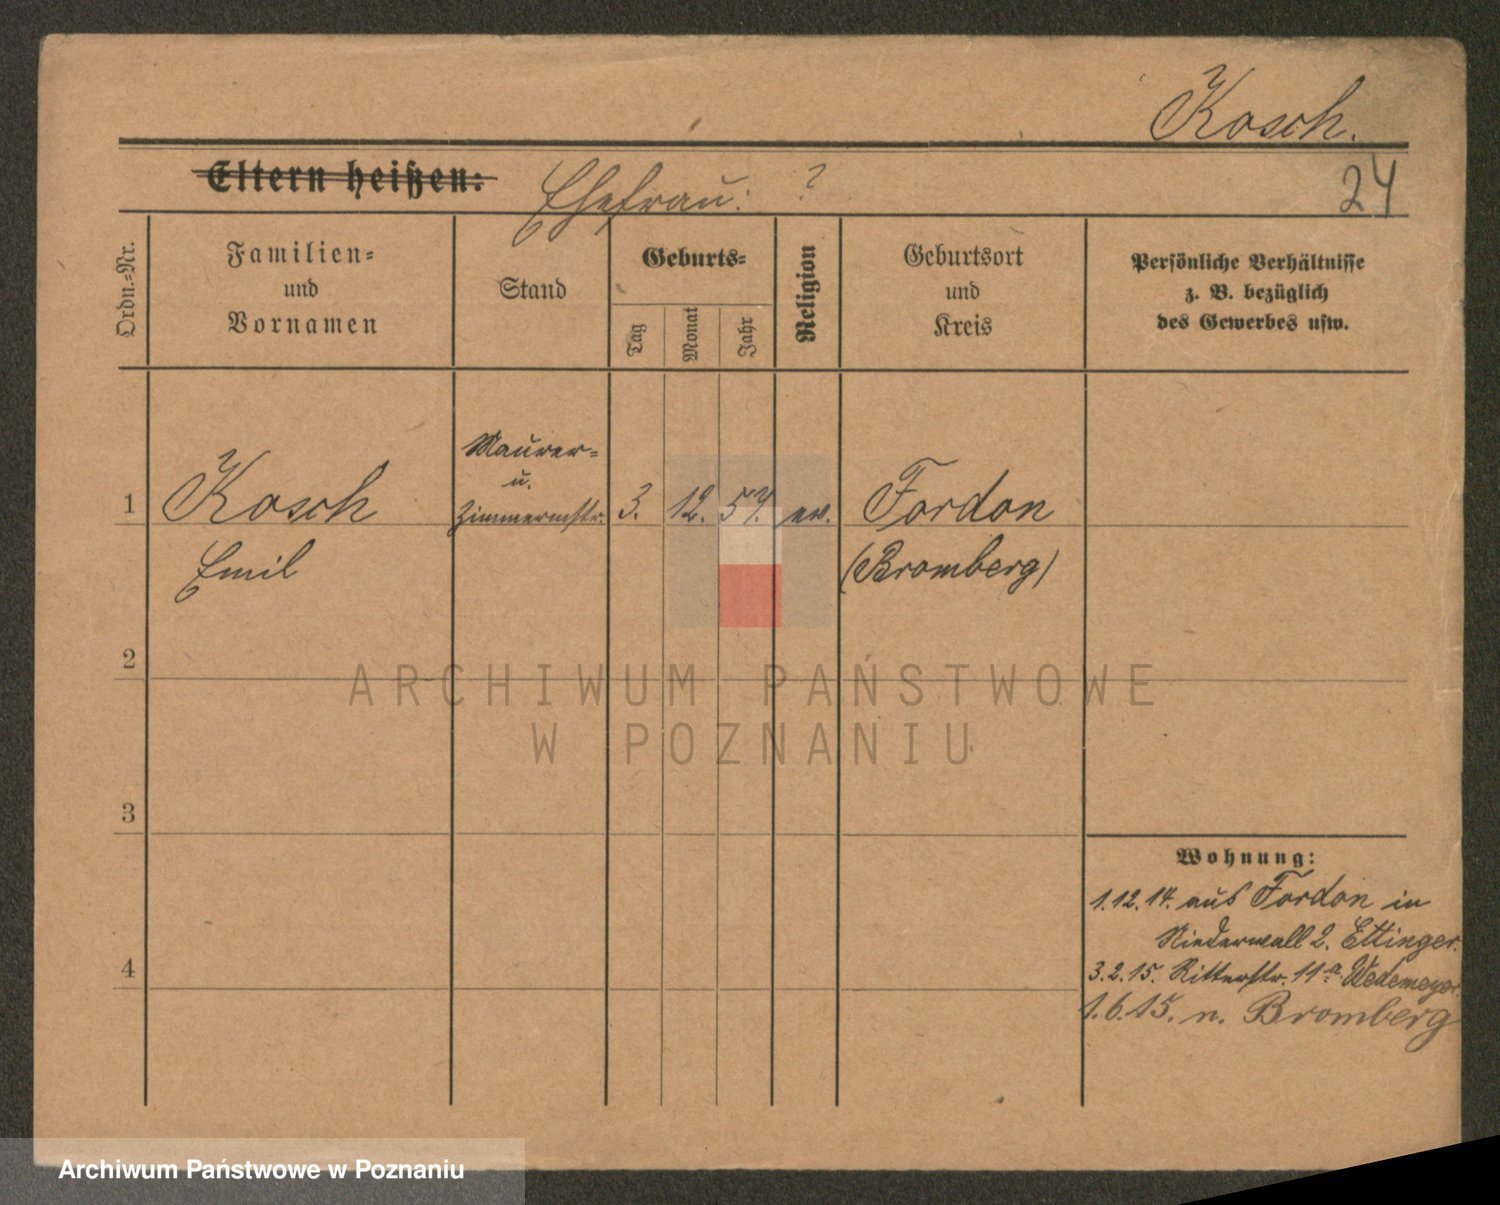 Kosch.
Eltern heißen: Ehefrau: ?
24
Ordn.=Nr.
Familien=
und
Vornamen
Stand
Geburts=
Tag
Monat
Jahr
Religion
Geburtsort
und
Kreis
Persönliche Verhältnisse
z. B. bezüglich
des Gewerbes usw.
1
Kosch
Emil
Maurer=
u.
Zimmermstr.
3. 12. 57. ev.
Fordon
(Bromberg)
2
3
4
Wohnung:
1.12.14. aus Fordon in
Niederwall 2. Ettinger.
3.2.15. Ritterstr. 11a. Wedemeyer.
1.6.15. n. Bromberg
ARCHIWUM PAŃSTWOWE
W POZNANIU
Archiwum Państwowe w Poznaniu